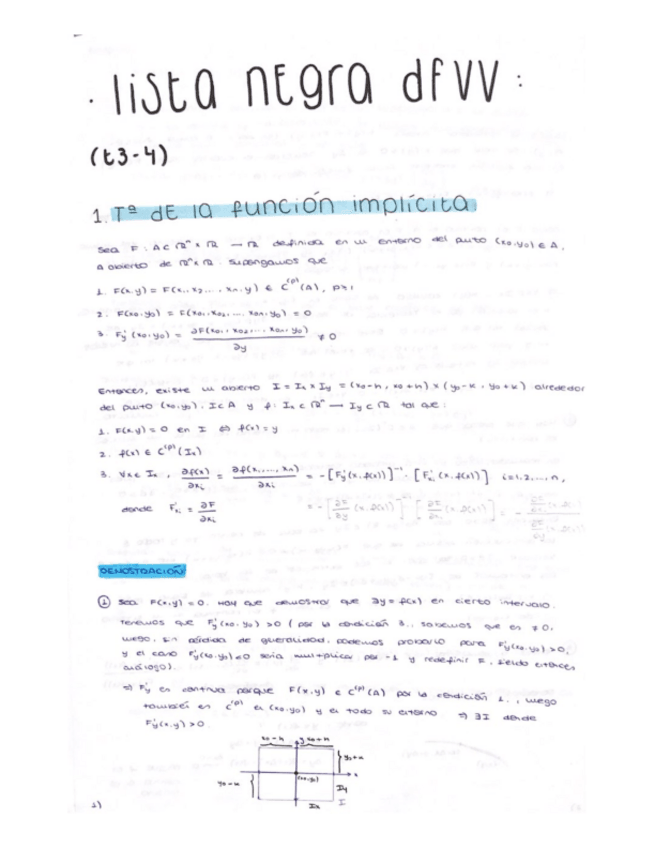 · lista nEgra dfVV :
(t3-4)
1. Tª dE la función implícita
Sea F : A ⊂ ℝⁿ × ℝ → ℝ definida en un entorno del punto (x₀,y₀) ∈ A,
A abierto de ℝⁿ × ℝ. Supongamos que
1. F(x,y) = F(x₁, x₂, ..., xn, y) ∈ C^(p)(A), p≥1
2. F(x₀,y₀) = F(x₀₁, x₀₂, ..., x₀n, y₀) = 0
3. F'y (x₀,y₀) = ∂F(x₀₁, x₀₂, ..., x₀n, y₀) / ∂y ≠ 0
Entonces, existe un abierto I = Ix × Iy = (x₀-h, x₀+h) × (y₀-k, y₀+k) alrededor
del punto (x₀,y₀), I⊂A y f: Ix ⊂ ℝⁿ → Iy ⊂ ℝ tal que:
1. F(x,y) = 0 en I ⇔ f(x) = y
2. f(x) ∈ C^(p)(Ix)
3. ∀x∈ Ix, ∂f(x)/∂xi = ∂f(x₁, ..., xn)/∂xi = -[F'y(x,f(x))]⁻¹ · [F'xi(x,f(x))] i=1,2,...,n,
donde F'xi = ∂F/∂xi = -[∂F/∂y (x,f(x))]⁻¹ [∂F/∂xi (x,f(x))] = -
DEMOSTRACIÓN
① Sea F(x,y) = 0. Hay que demostrar que ∃y = f(x) en cierto intervalo.
Tenemos que F'y(x₀,y₀) > 0 (por la condición 3., sabemos que es ≠ 0,
luego, sin pérdida de generalidad, podemos probarlo para F'y(x₀,y₀) > 0,
y el caso F'y(x₀,y₀) < 0 sería multiplicar por -1 y redefinir F, siendo entonces
análogo).
⇒ F'y es continua porque F(x,y) ∈ C^(p)(A) por la condición 1., luego
también en (x₀,y₀) y en todo su entorno ⇒ ∃I donde
F'y(x,y) > 0.
x₀-h y x₀+h
y₀+k
x
(x₀,y₀)
y₀-k
Iy
Ix I
1)